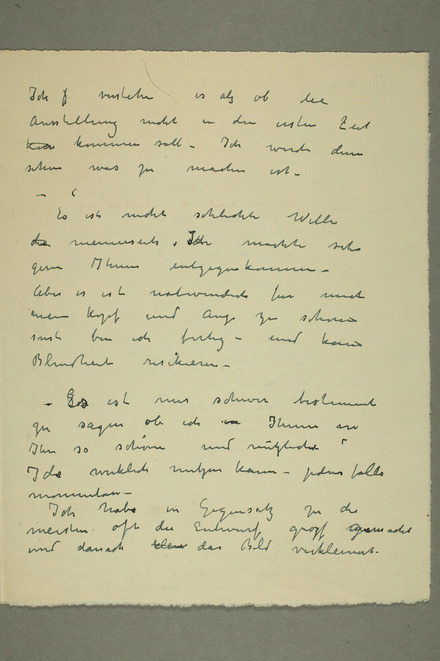 Ich verstehe es als ob die
Ausstellung nicht in der ersten Zeit
kommen soll - Ich werde dann
sehen was zu machen ist -
Es ist nicht schlechter Wille
meinerseits. Ich möchte sehr
gern Ihnen entgegenkommen -
Aber es ist notwendig für mich
meinen Kopf und Auge zu schonen
sonst bin ich fertig - und kann
Blindheit riskieren -
- Es ist mir schwer bestimmt
zu sagen ob ich Ihnen
Ihre so schöne und nützliche
Idee wirklich nutzen kann - jedenfalls
momentan -
Ich habe im Gegensatz zu den
meisten oft den Entwurf gross gemacht
und danach das Bild verkleinert.